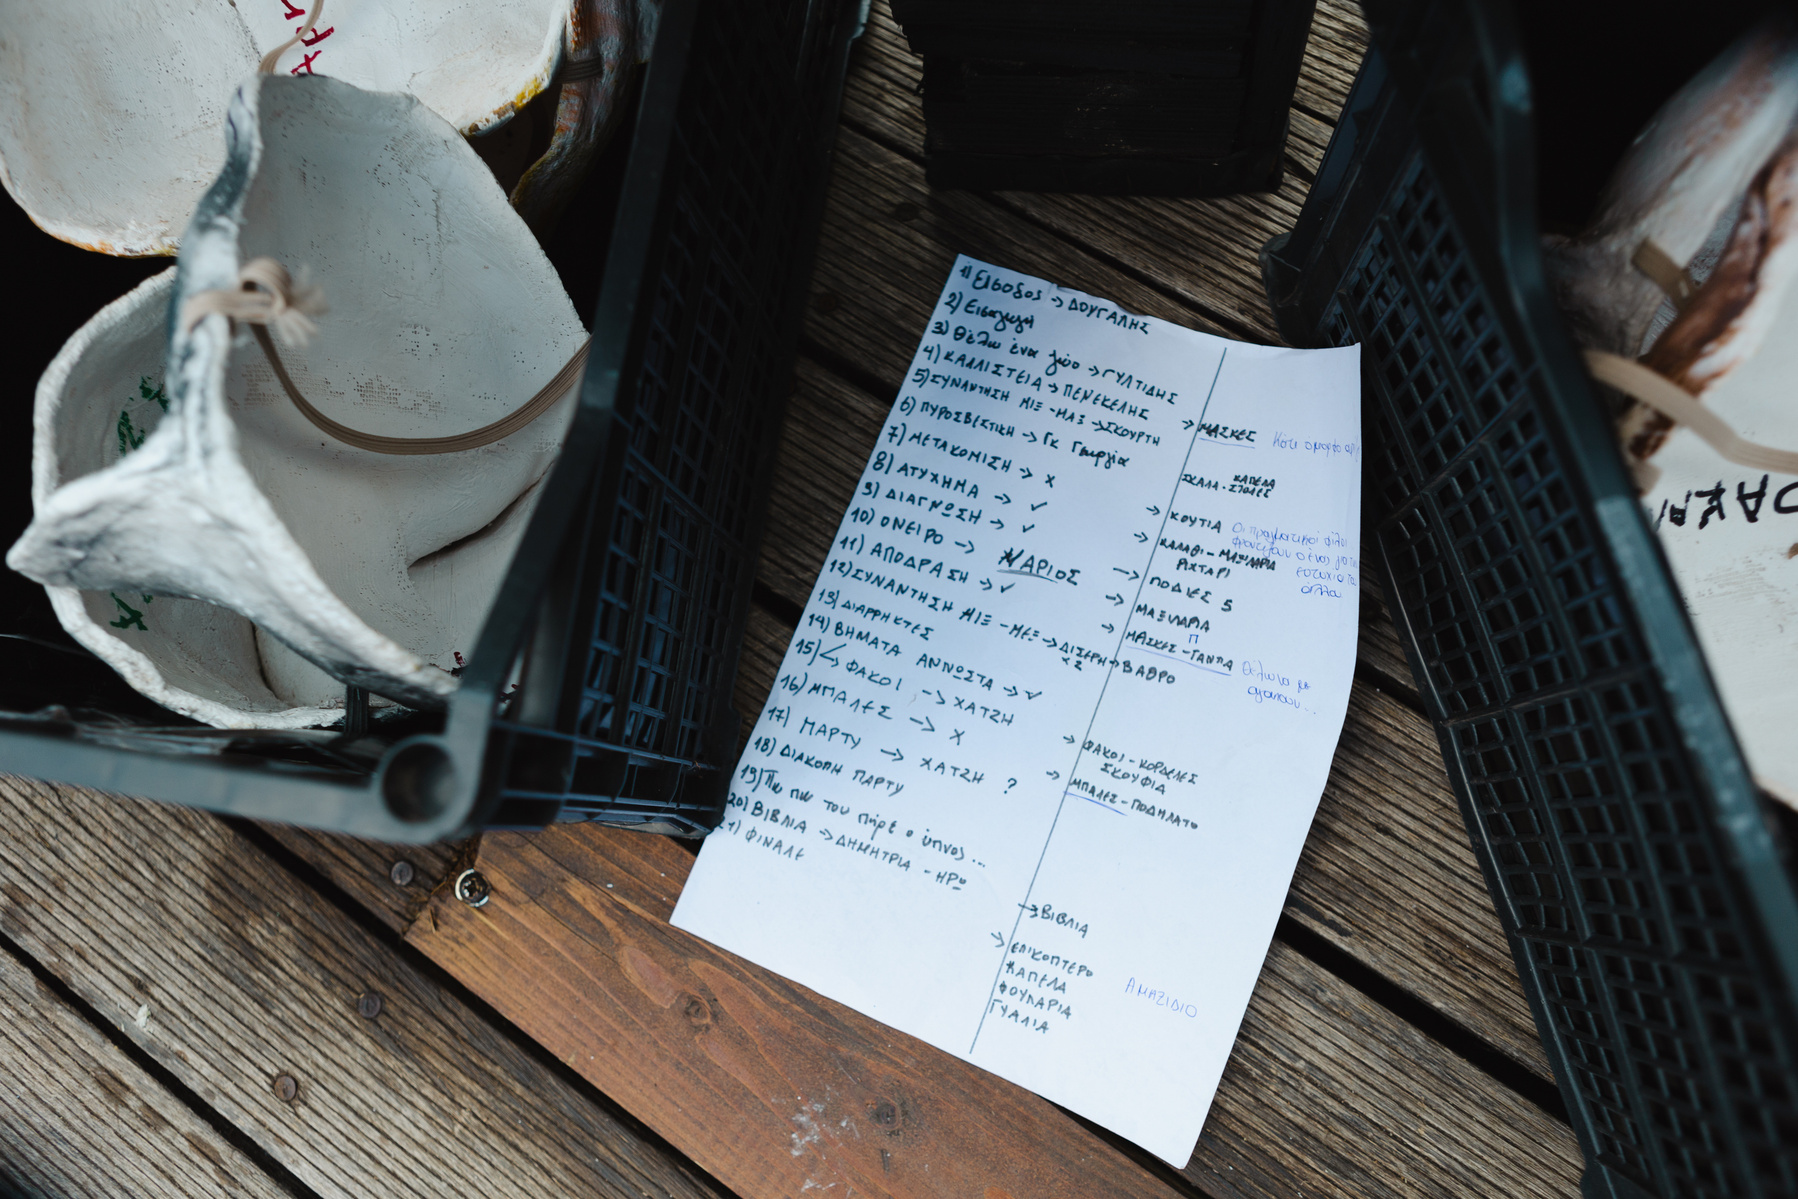 1) Είσοδος → ΔΟΥΓΑΛΗΣ
2) Εισαγωγή
3) Θέλω ένα ζώο → ΓΥΛΤΙΔΗΣ
4) ΚΑΛΛΙΣΤΕΙΑ → ΠΕΝΕΚΕΛΗΣ
5) ΣΥΝΑΝΤΗΣΗ ΜΙΞ - ΜΑΞ → ΣΚΟΥΡΤΗ
6) ΠΥΡΟΣΒΕΣΤΙΚΗ → Γκ Γεωργία
7) ΜΕΤΑΚΟΜΙΣΗ → X
8) ΑΤΥΧΗΜΑ → ✓
9) ΔΙΑΓΝΩΣΗ → ✓
10) ΟΝΕΙΡΟ → ΜΑΡΙΟΣ
11) ΑΠΟΔΡΑΣΗ → ✓
12) ΣΥΝΑΝΤΗΣΗ ΜΙΞ - ΜΕΞ → ΔΙΣΕΡΗ
x 2
13) ΔΙΑΡΡΗΚΤΕΣ
14) ΒΗΜΑΤΑ ΑΓΝΩΣΤΑ → ✓
15) ↳ ΦΑΚΟΙ → ΧΑΤΖΗ
16) ΜΠΑΛΕΣ → X
17) ΠΑΡΤΥ → ΧΑΤΖΗ ?
18) ΔΙΑΚΟΠΗ ΠΑΡΤΥ
19) Πω πω του πήρε ο ύπνος...
20) ΒΙΒΛΙΑ → ΔΗΜΗΤΡΙΑ - ΗΡΩ
21) ΦΙΝΑΛΕ
→ ΜΑΣΚΕΣ Κάτι όμορφο
ΚΑΠΕΛΑ
ΣΚΑΛΑ - ΣΤΟΛΕΣ
→ ΚΟΥΤΙΑ Οι πραγματικοί φίλοι
→ ΚΑΛΑΘΙ - ΜΑΞΙΛΑΡΙΑ φροντίζουν ο ένας για την
ΡΙΧΤΑΡΙ ευτυχία του
άλλου
→ ΠΟΔΙΕΣ 5
→ ΜΑΞΙΛΑΡΙΑ
Π
→ ΜΑΣΚΕΣ - ΤΑΜΠΑ Θέλω να με
αγαπουν...
→ ΒΑΘΡΟ
→ ΦΑΚΟΙ - ΚΟΡΔΕΛΕΣ
ΣΚΟΥΦΙΑ
→ ΜΠΑΛΕΣ - ΠΟΔΗΛΑΤΟ
→ ΒΙΒΛΙΑ
→ ΕΛΙΚΟΠΤΕΡΟ
ΚΑΠΕΛΑ
ΦΟΥΛΑΡΙΑ
ΓΥΑΛΙΑ
ΑΜΑΞΙΔΙΟ